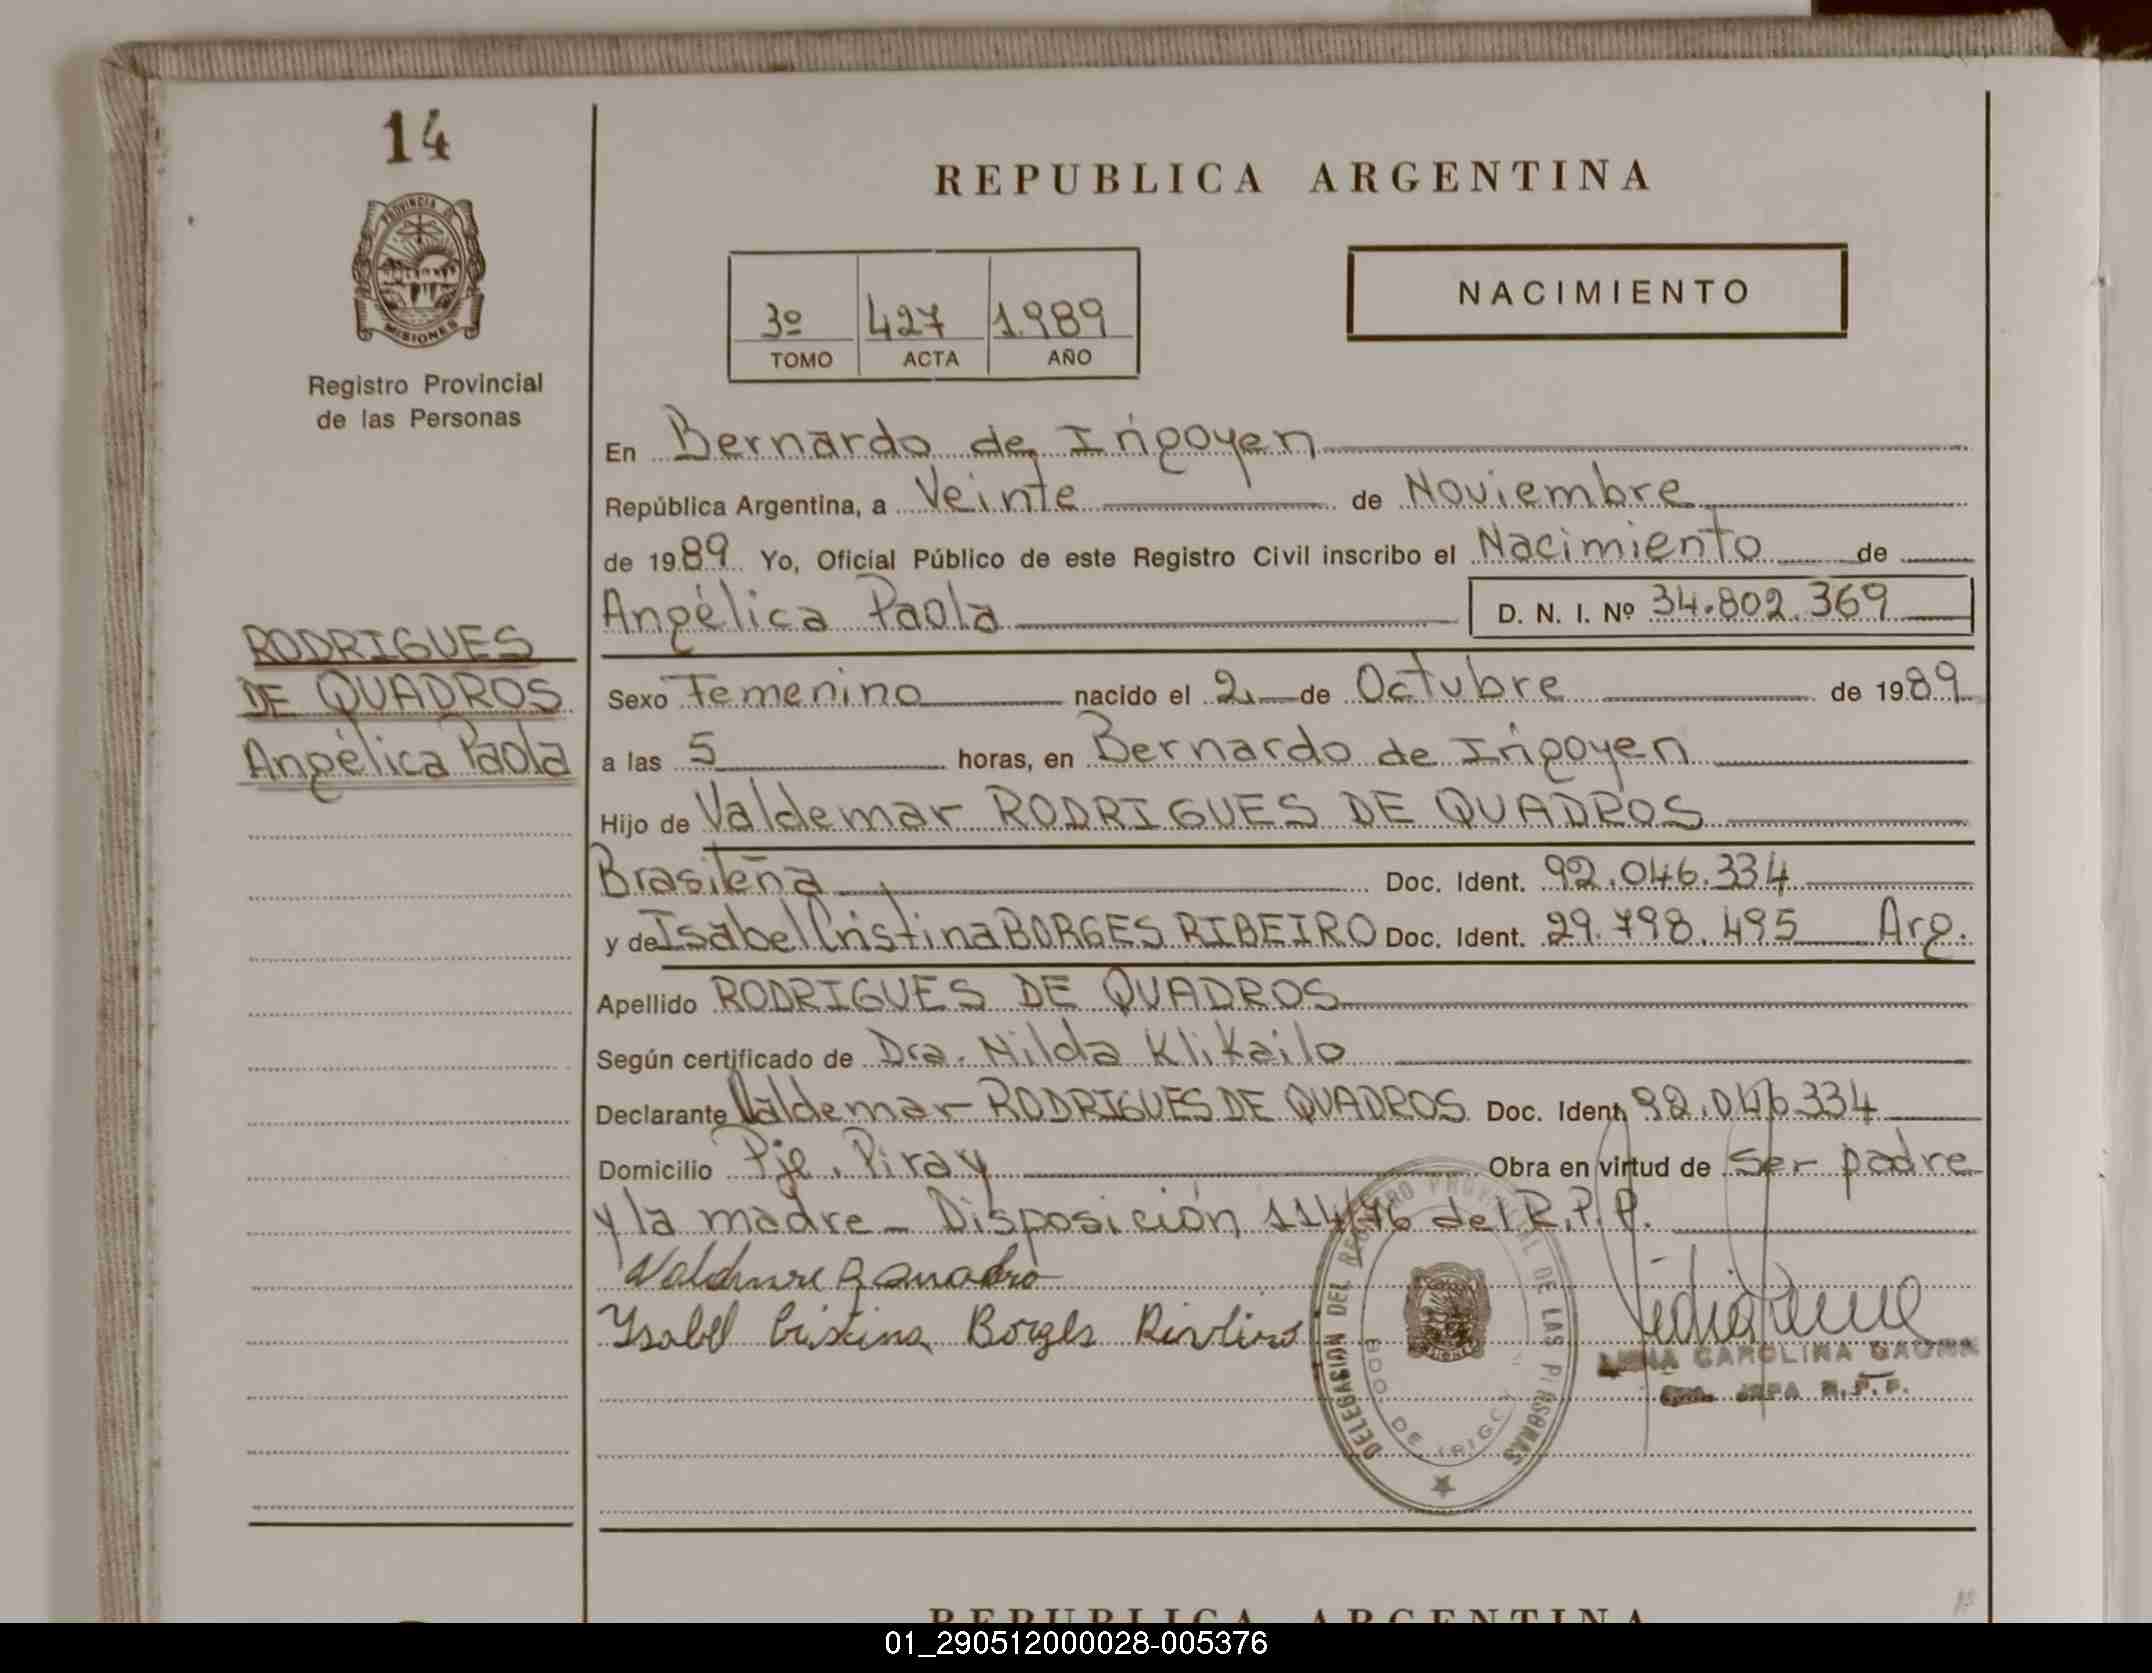 14
PROVINCIA DE
MISIONES
Registro Provincial
de las Personas
RODRIGUES
DE QUADROS
Angélica Paola
REPUBLICA ARGENTINA
3º 427 1.989
TOMO ACTA AÑO
NACIMIENTO
En Bernardo de Irigoyen
República Argentina, a Veinte de Noviembre
de 1989 Yo, Oficial Público de este Registro Civil inscribo el Nacimiento de
Angélica Paola D. N. I. Nº 34.802.369
Sexo Femenino nacido el 2 de Octubre de 1989
a las 5 horas, en Bernardo de Irigoyen
Hijo de Valdemar RODRIGUES DE QUADROS
Brasileña Doc. Ident. 92.046.334
y de Isabel Cristina BORGES RIBEIRO Doc. Ident. 29.798.495 Arg.
Apellido RODRIGUES DE QUADROS
Según certificado de Dra. Nilda Klikailo
Declarante Valdemar RODRIGUES DE QUADROS Doc. Ident. 92.046.334
Domicilio Pje. Piray Obra en virtud de ser padre
y la madre - Disposición 114/76 del R.P.P.
Ysabel Cristina Borges
DELEGASION DEL REGISTRO PROVINCIAL DE LAS PERSONAS
BDO. DE IRIGOY
CAROLINA
JEFA R.P.P.
REPUBLICA ARGENTINA
01_290512000028-005376